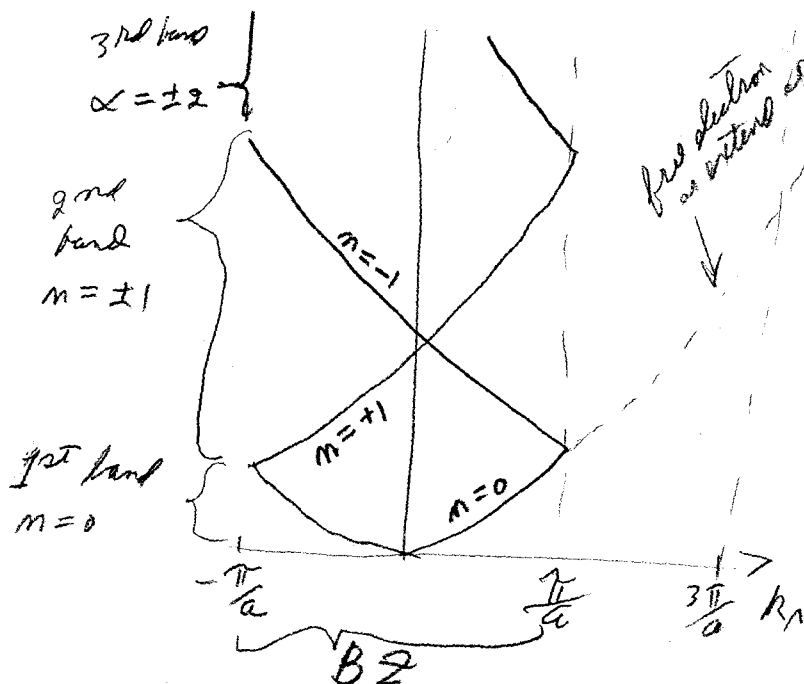 3rd band
α = ±2
2nd
band
n = ±1
1st band
n = 0
n=-1
n=+1
n=0
free electron
-π/a
π/a
3π/a
BZ